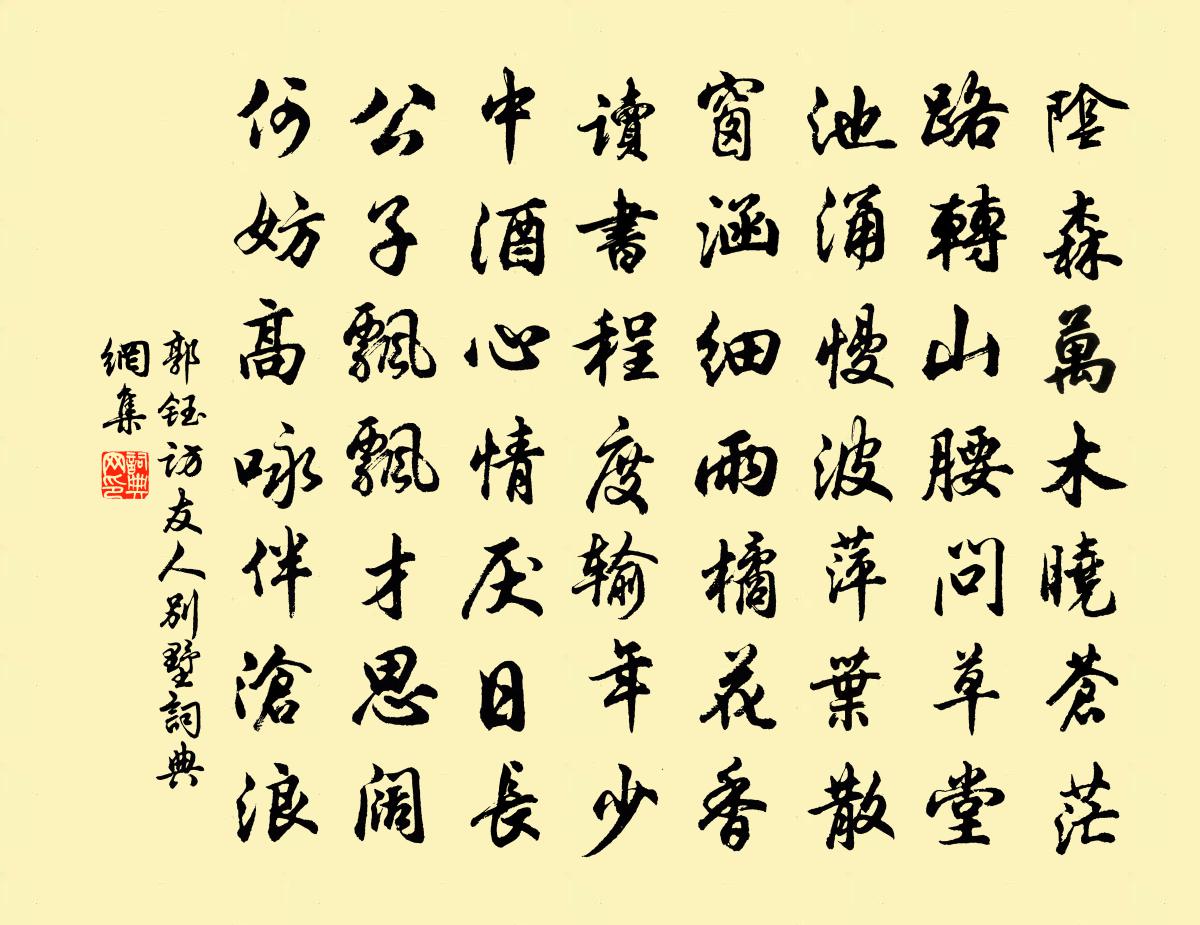 陰森萬木曉蒼茫
路轉山腰問草堂
池涌慢波萍葉散
窗涵細雨橘花香
讀書程度輸年少
中酒心情厌日長
公子飄飄才思阔
何妨高咏伴滄浪
郭鈺访友人别墅詞典
網集
詞典
网印